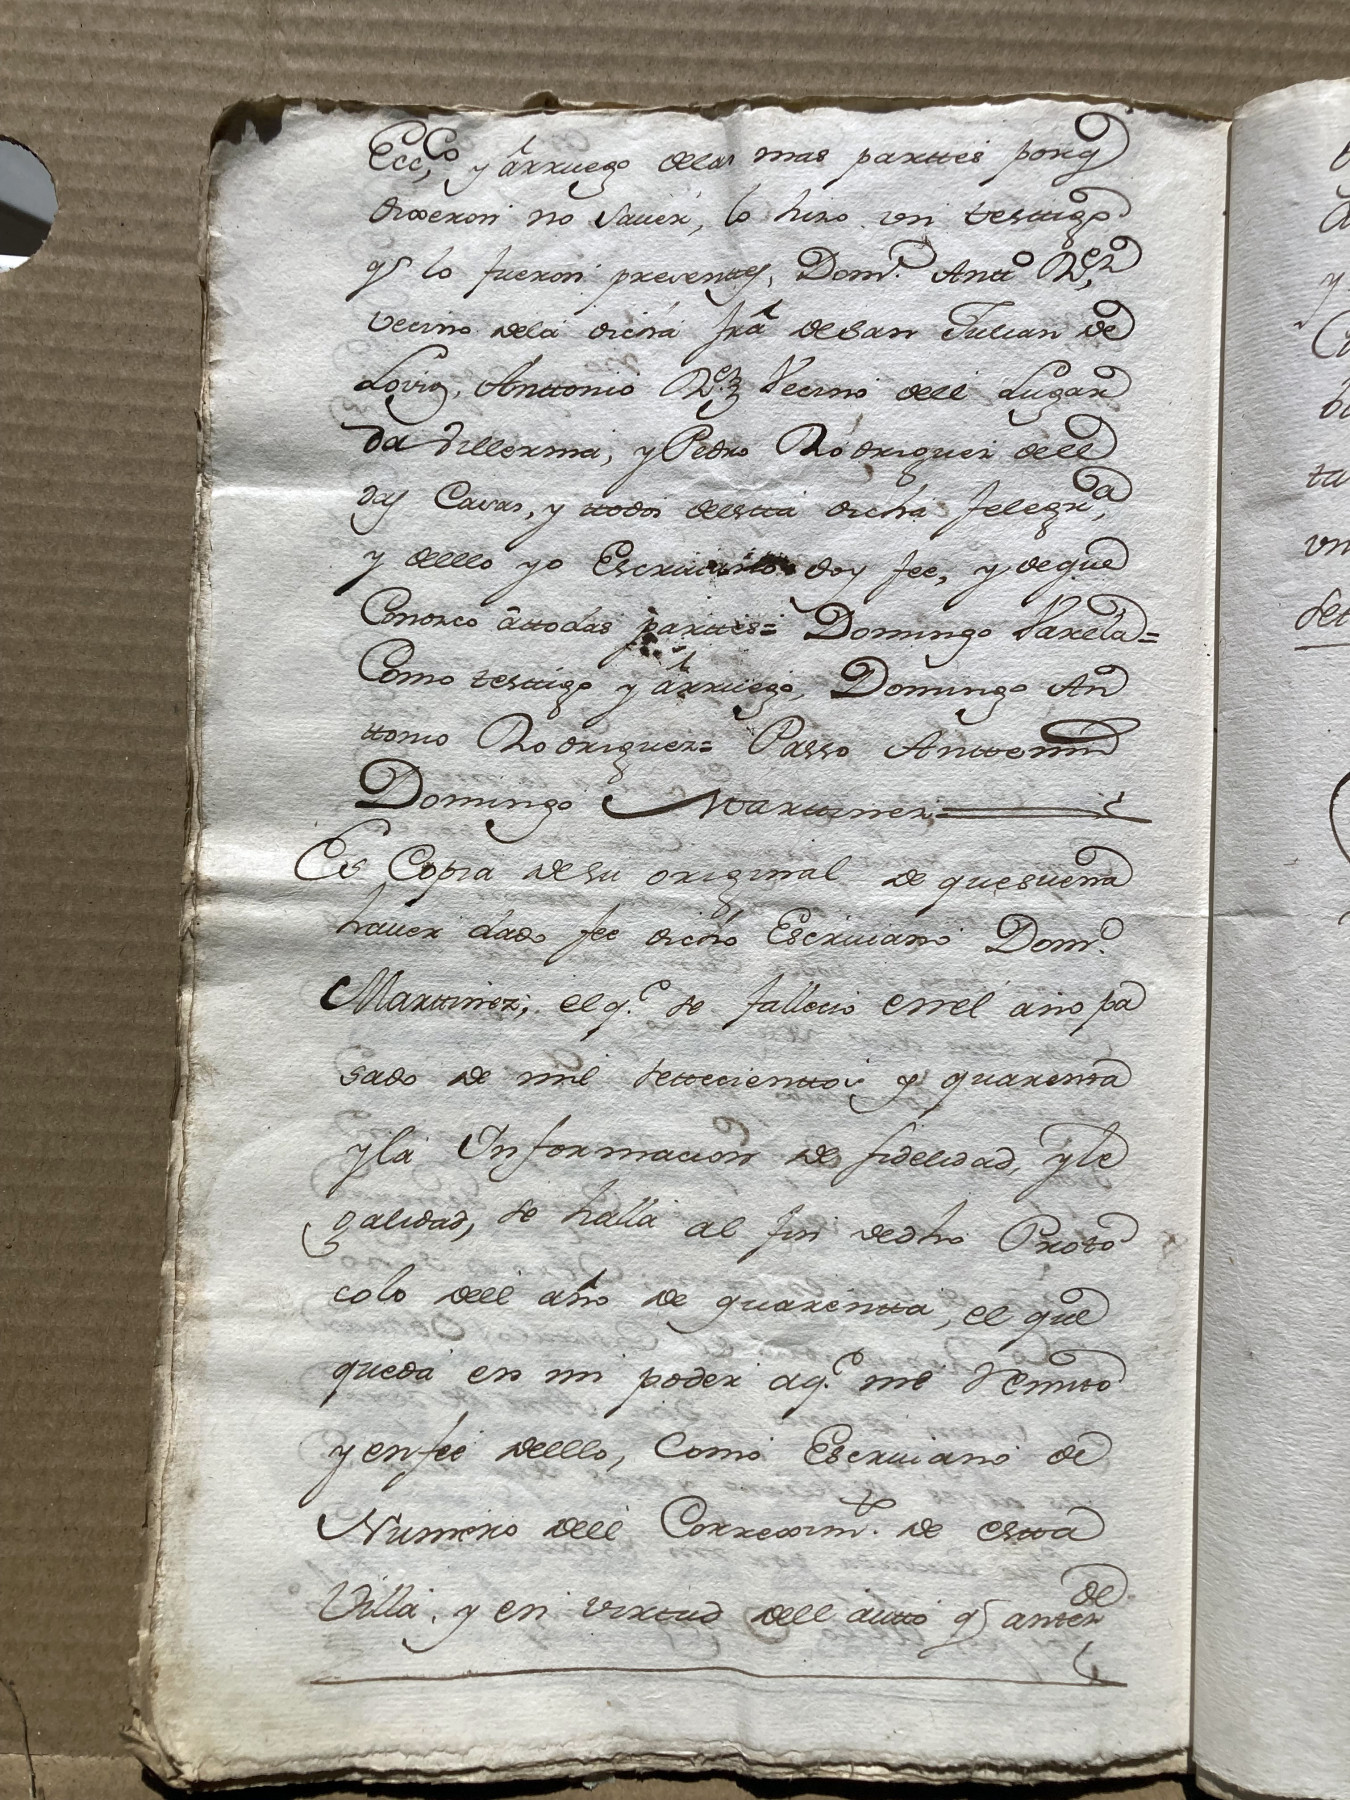 Ecc,co y árruego delas mas parttes porq
dixeron no Saver, lo hizo un testtigo
qs lo fueron presenttes, Domo. Antto Rz,
Vecino dela dicha fra de San Julian de
Loviog, Anttonio Rz Vecino dell Lugar
da Villerma, y Pedro Rodriguez dell
das Cavas, y ttodos destta dicha felegra,
y dello yo Escrivano doy fee, y deque
Conozco âttodas parttes= Domingo Varela=
Como testtigo y árruego, Domingo An
ttonio Rodriguez= Passo Anttemi
Domingo Marttinez=
Es Copia desu original de quesuena
haver dado fee dicho Escrivano Domo.
Marttinez, elqe. se fallecio enel año pa
sado de mil settecienttos y quarenta
yla Informacion de fidelidad, yle
galidad, se halla al fin dedho Proto
colo dell año de quarentta, el que
queda en mi poder aqe. me Remito
y enfee dello, Como Escrivano de
Numero dell Correximto. de estta
Villa, y en virtud dell autto qs antez
de